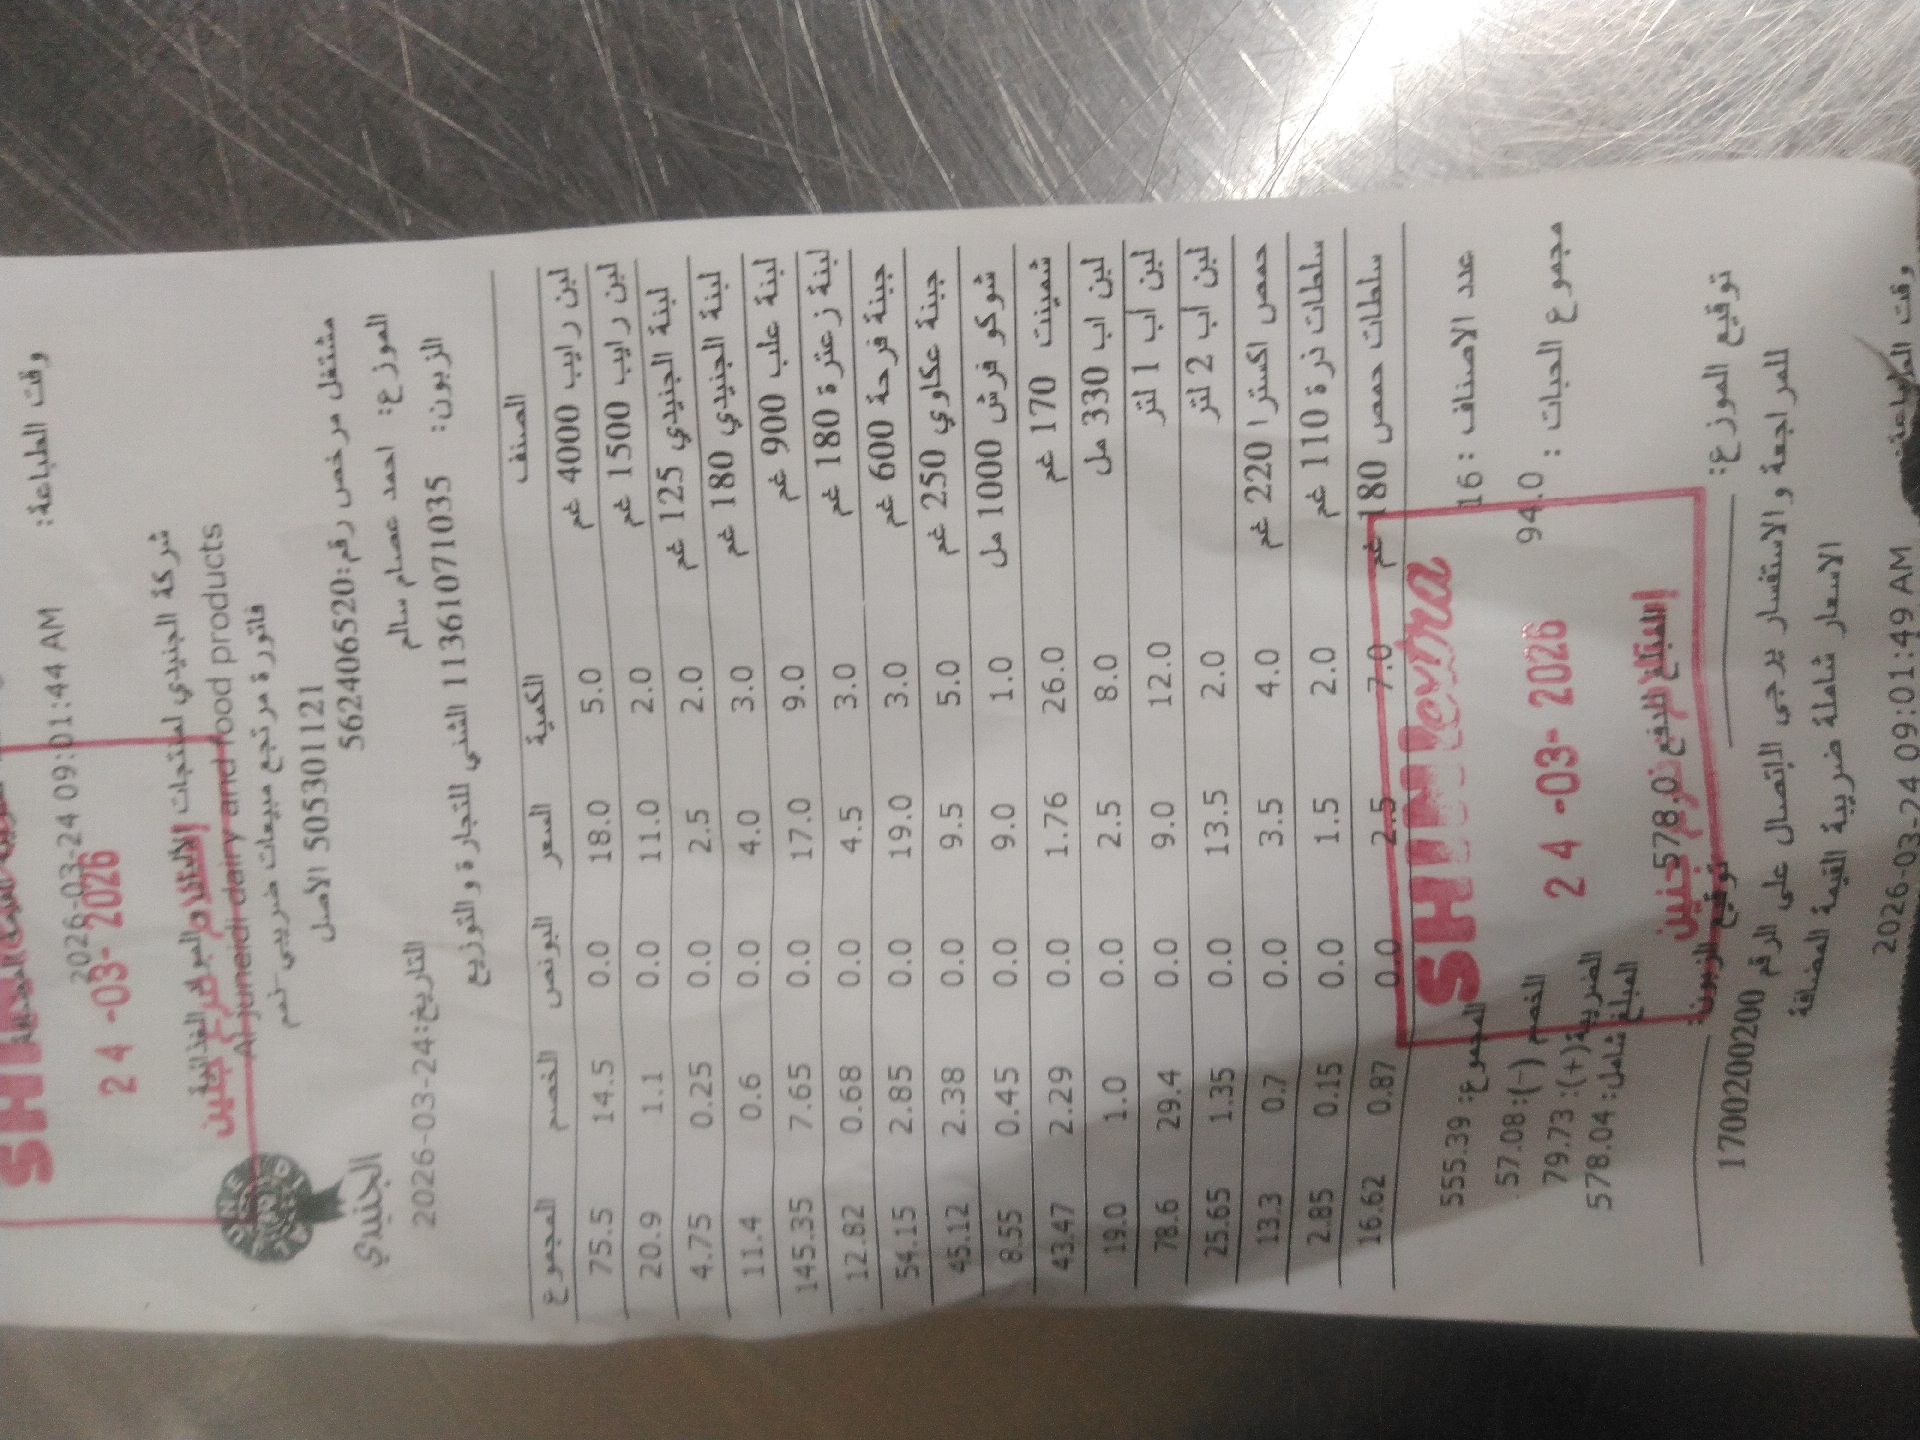 وقت الطباعة:
2026-03-24 09:01:44 AM
24 -03- 2026
شركة الجنيدي لمنتجات الألبان والمواد الغذائية
Al-juneidi dairy and food products
فاتورة مرتجع مبيعات ضريبي-نسم
505301121 الأصل
مشتغل مرخص رقم:562406520
الموزع: احمد عصام سالم
الجنيدي
الزبون: 11361071035 الشني للتجارة والتوزيع
التاريخ:2026-03-24
الصنف الكمية السعر البونص الخصم المجموع
لبن رايب 4000 غم 5.0 18.0 0.0 14.5 75.5
لبن رايب 1500 غم 2.0 11.0 0.0 1.1 20.9
لبنة الجنيدي 125 غم 2.0 2.5 0.0 0.25 4.75
لبنة الجنيدي 180 غم 3.0 4.0 0.0 0.6 11.4
لبنة علب 900 غم 9.0 17.0 0.0 7.65 145.35
لبنة زعترة 180 غم 3.0 4.5 0.0 0.68 12.82
جبنة فرحة 600 غم 3.0 19.0 0.0 2.85 54.15
جبنة عكاوي 250 غم 5.0 9.5 0.0 2.38 45.12
شوكو فرش 1000 مل 1.0 9.0 0.0 0.45 8.55
شمينت 170 غم 26.0 1.76 0.0 2.29 43.47
لبن اب 330 مل 8.0 2.5 0.0 1.0 19.0
لبن اب 1 لتر 12.0 9.0 0.0 29.4 78.6
لبن اب 2 لتر 2.0 13.5 0.0 1.35 25.65
حمص اكسترا 220 غم 4.0 3.5 0.0 0.7 13.3
سلطات ذرة 110 غم 2.0 1.5 0.0 0.15 2.85
سلطات حمص 180 غم 7.0 2.5 0.0 0.87 16.62
SHINI extra
عدد الاصناف : 16
المجموع: 555.39
مجموع الحبات : 94.0
الخصم (-): 57.08
24 -03- 2026
الضريبة(+): 79.73
المبلغ شامل: 578.04
المبلغ للدفع 578.0
توقيع الموزع:
توقيع الزبون:
للمراجعة والاستفسار يرجى الاتصال على الرقم 1700200200
الاسعار شاملة ضريبة القيمة المضافة
وقت الطباعة:
2026-03-24 09:01:49 AM